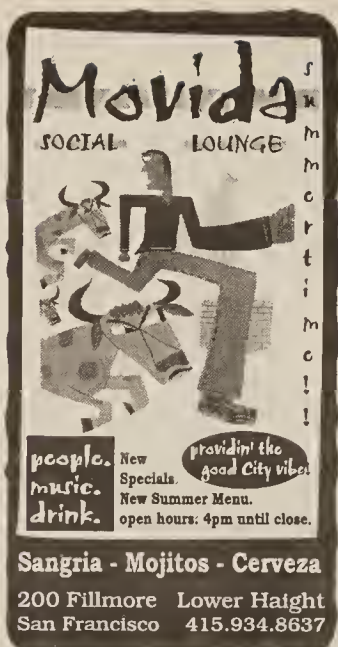 Movida
SOCIAL LOUNGE
summertime!!
people.
music.
drink.
New
Specials.
New Summer Menu.
open hours: 4pm until close.
providin' the
good City vibes
Sangria - Mojitos - Cerveza
200 Fillmore Lower Haight
San Francisco 415.934.8637